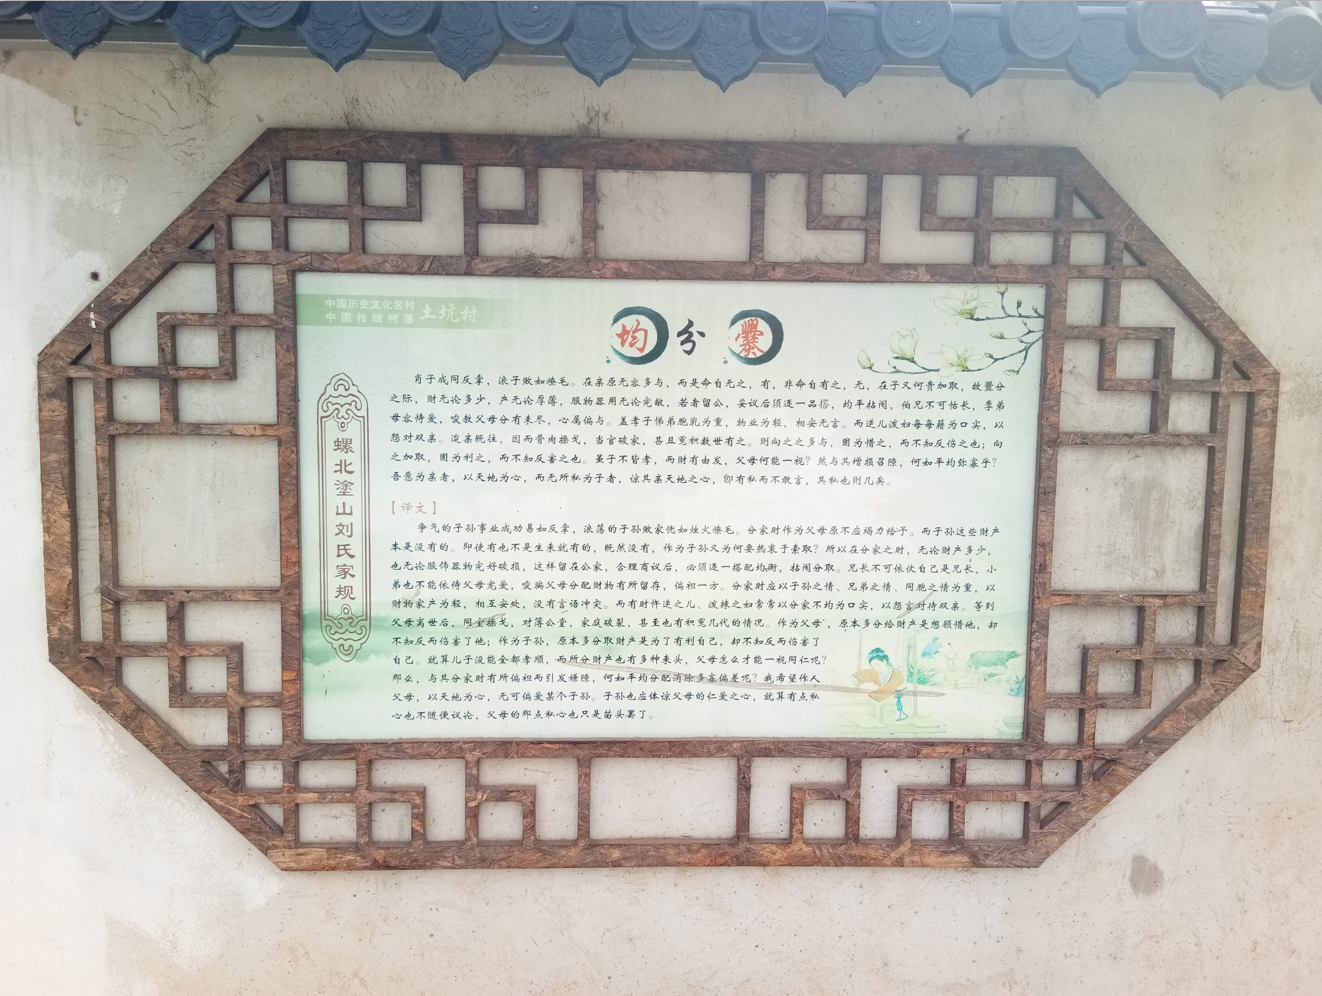 中国历史文化名村
中国传统村落
土坑村
均分爨
螺北塗山刘氏家规
肖子成同反掌，浪子败如燎毛。在亲原无容多与，而是命自无之，有，非命自有之，无，在子又何贵加取，故爨分
之际，财无论多少，产无论厚薄，服物器用无论完敝，若者留公，妥议后须逐一品搭，均平拈阄，伯兄不可怙长，季弟
毋容恃爱，唆教父母分有未尽，心属偏与。盖孝子悌弟胞乳为重，物业为轻，相安无言。而逆儿泼妇每每藉为口实，以
怨对双亲。迨亲既往，因而骨肉操戈，当官破家，甚且冤积数世有之。则向之之多与，图为惜之，而不知反伤之也；向
之加取，图为利之，而不知反害之也。虽子不皆孝，而财有由发，父母何能一视？然与其增损召隙，何如平均弥寡乎？
吾愿为亲者，以天地为心，而无所私为子者，谅其亲天地之心，即有私而不敢言，其私也则几矣。
【译文】
争气的子孙事业成功易如反掌，浪荡的子孙败家恍如烛火燎毛。分家时作为父母原不应竭力给予。而子孙这些财产
本是没有的。即使有也不是生来就有的，既然没有，作为子孙又为何要热衷于索取？所以在分家之时，无论财产多少，
也无论服饰器物完好破损，这样留在公家，合理商议后，必须逐一搭配均衡，拈阄分取。兄长不可依仗自己是兄长，小
弟也不能依侍父母宠爱，唆骗父母分配财物有所留存，偏袒一方。分家时应以子孙之情、兄弟之情、同胞之情为重，以
财物家产为轻，相互安处，没有言语冲突。而有时忤逆之儿、泼辣之如常常以分家不均为口实，以怨言对待双亲。等到
父母离世后，同室操戈，对薄公堂，家庭破裂，甚至也有积冤几代的情况。作为父母，原本多分给财产是想顾惜他，却
不知反而伤害了他；作为子孙，原本多分取财产是为了有利自己，却不知反而伤害了
自己。就算儿子没能全都孝顺，而所分财产也有多种来头，父母怎么才能一视同仁呢？
那么，与其分家时有所偏袒而引发嫌隙，何如平均分配消除多寡偏差呢？我希望作人
父母，以天地为心，无可偏爱某个子孙。子孙也应体谅父母的仁爱之心，就算有点私
心也不随便议论，父母的那点私心也只是苗头罢了。